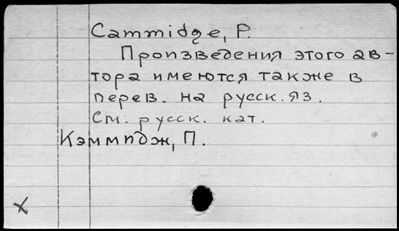 Cammidge, P.
Произведения этого ав-
тора имеются также в
перев. на русск. яз.
См. русск. кат.
Кэммидж, П.
X